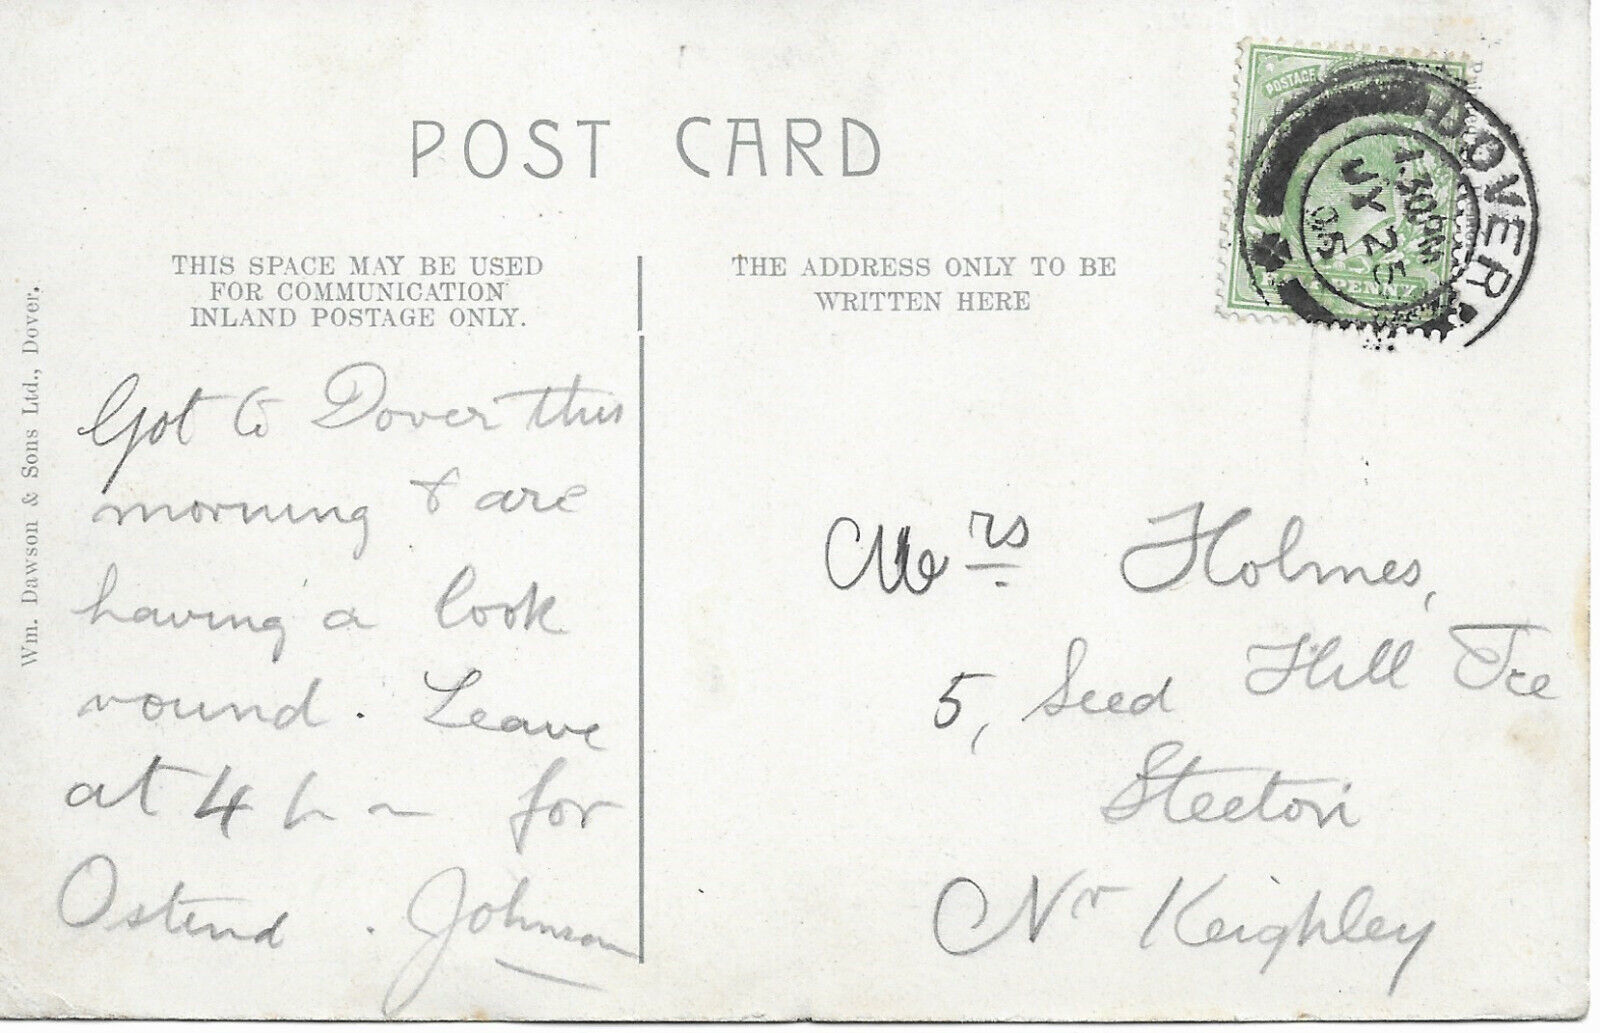 POST CARD
THIS SPACE MAY BE USED
FOR COMMUNICATION
INLAND POSTAGE ONLY.
THE ADDRESS ONLY TO BE
WRITTEN HERE
Wm. Dawson & Sons Ltd., Dover.
POSTAGE
PENNY
DOVER
1.30 PM
JY 25
05
Got to Dover this
morning & are
having a look
round. Leave
at 4 for
Ostend. Johnson
Mrs Holmes,
5, Seed Hill Tce
Steeton
Nr Keighley